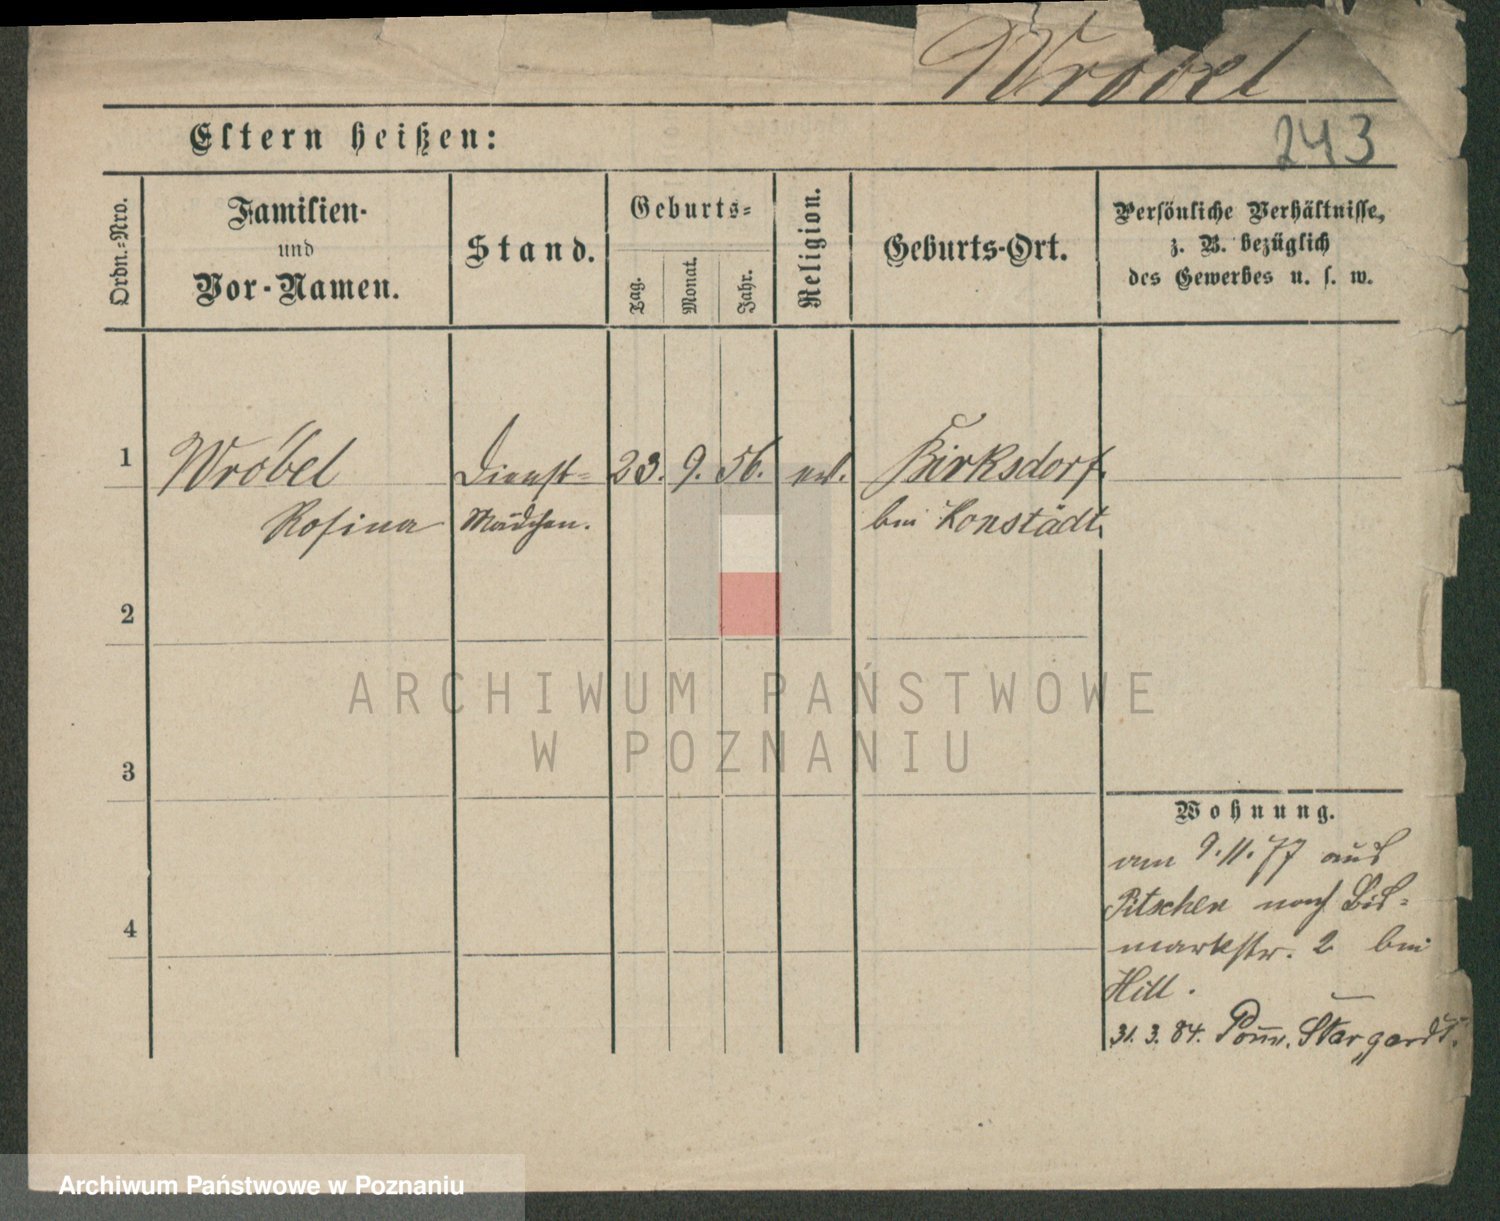 Wrobel
Eltern heißen:
243
Ordn.=Nro.
Familien-
und
Vor-Namen.
Stand.
Geburts=
Tag.
Monat.
Jahr.
Religion.
Geburts-Ort.
Persönliche Verhältnisse,
z. B. bezüglich
des Gewerbes u. s. w.
1
Wróbel
Rosina
Dienst=
Mädchen.
23.
9.
56.
ev.
Birksdorf
bei Konstädt
2
ARCHIWUM PAŃSTWOWE
W POZNANIU
3
Wohnung.
am 9.11.77 aus
Pitschen nach Bis=
markstr. 2 bei
Hill.
31. 3. 84. Pomm. Stargardt.
4
Archiwum Państwowe w Poznaniu